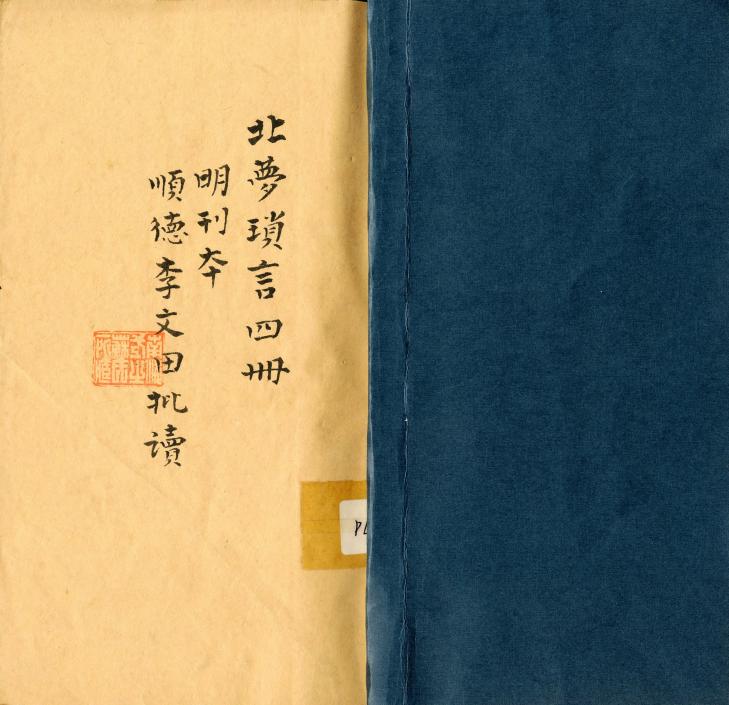 北夢瑣言四冊
明刊夲
順德李文田批讀
PL